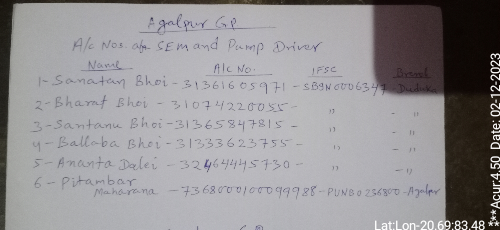 Agalpur GP
A/c Nos. of SEM and Pump Driver
Name A/c No. IFSC Branch
1-Sanatan Bhoi-31361605971-SBIN0006347-Duduka
2-Bharat Bhoi-31074220055- " - "
3-Santanu Bhoi-31365847815- " - "
4-Ballaba Bhoi-31333623755- " - "
5-Ananta Dalei-32464445730- " - "
6-Pitambar
Maharana-7368000100099988-PUNB0736800-Agalpur
***Acur:4.50 Date: 02-12-2023
Lat:Lon-20.69:83.48 **